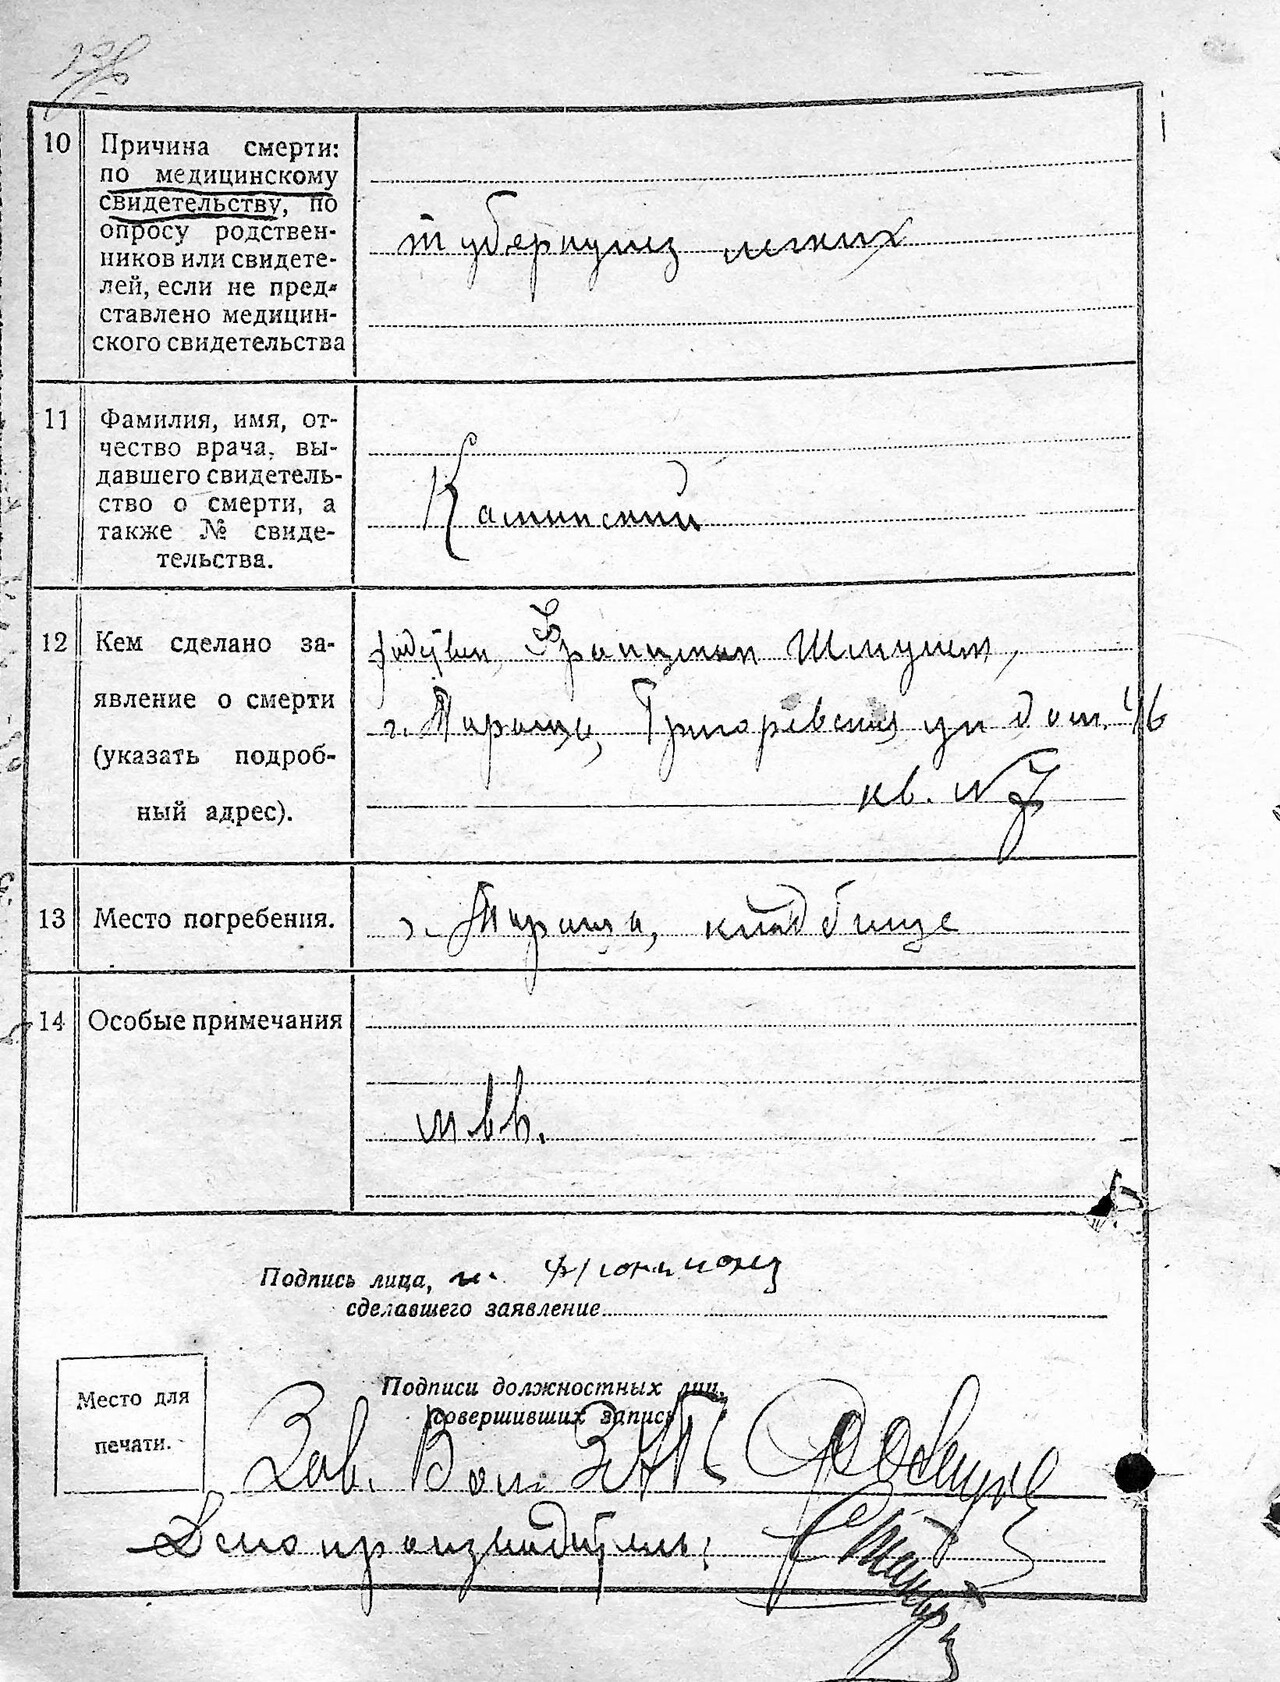 10
Причина смерти:
по медицинскому
свидетельству, по
опросу родствен-
ников или свидете-
лей, если не пред-
ставлено медицин-
ского свидетельства
туберкулез легких
11
Фамилия, имя, от-
чество врача, вы-
давшего свидетель-
ство о смерти, а
также № свиде-
тельства.
Каминский
12
Кем сделано за-
явление о смерти
(указать подроб-
ный адрес).
г. Тараща, Григоревская ул дом. 46
кв. № 7
13
Место погребения.
г. Тараща, кладбище
14
Особые примечания
Подпись лица,
сделавшего заявление
Место для
печати.
Подписи должностных лиц,
совершивших запись
Зав.
Делопроизводитель: